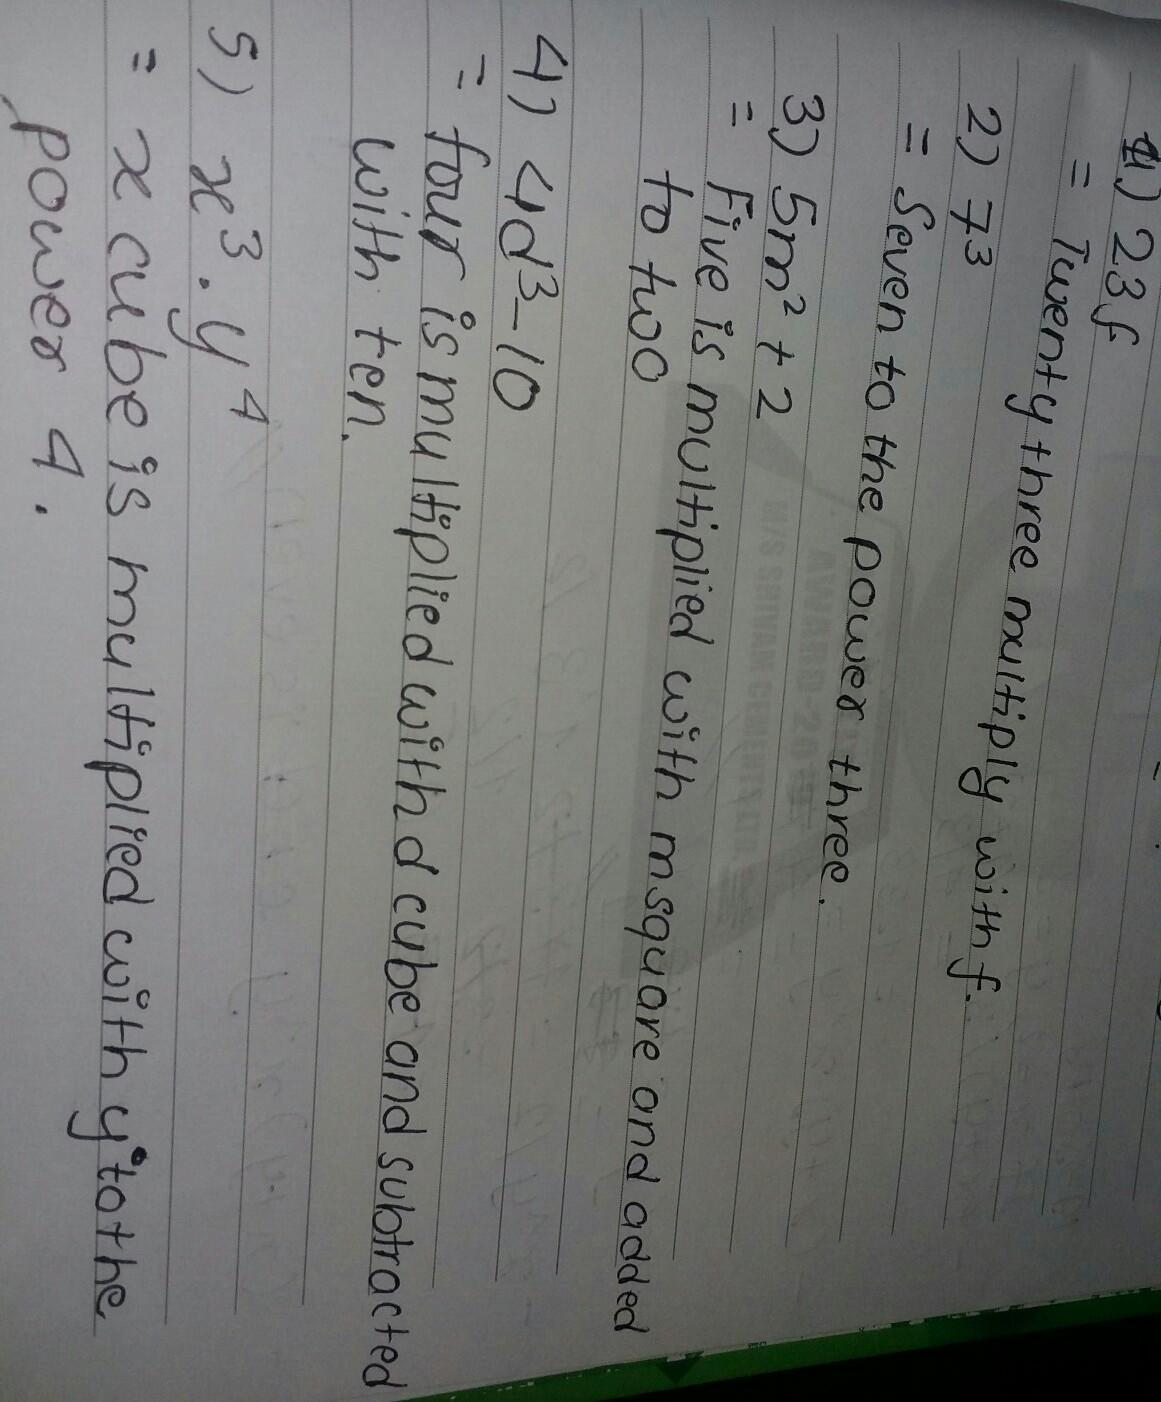 1) 23f
= Twenty three multiply with f.
2) 7³
= Seven to the power three.
3) 5m² + 2
= Five is multiplied with m square and added
to two
4) 4d³-10
= four is multiplied with d cube and subtracted
with ten.
5) x³. y⁴
= x cube is multiplied with y to the
power 4.